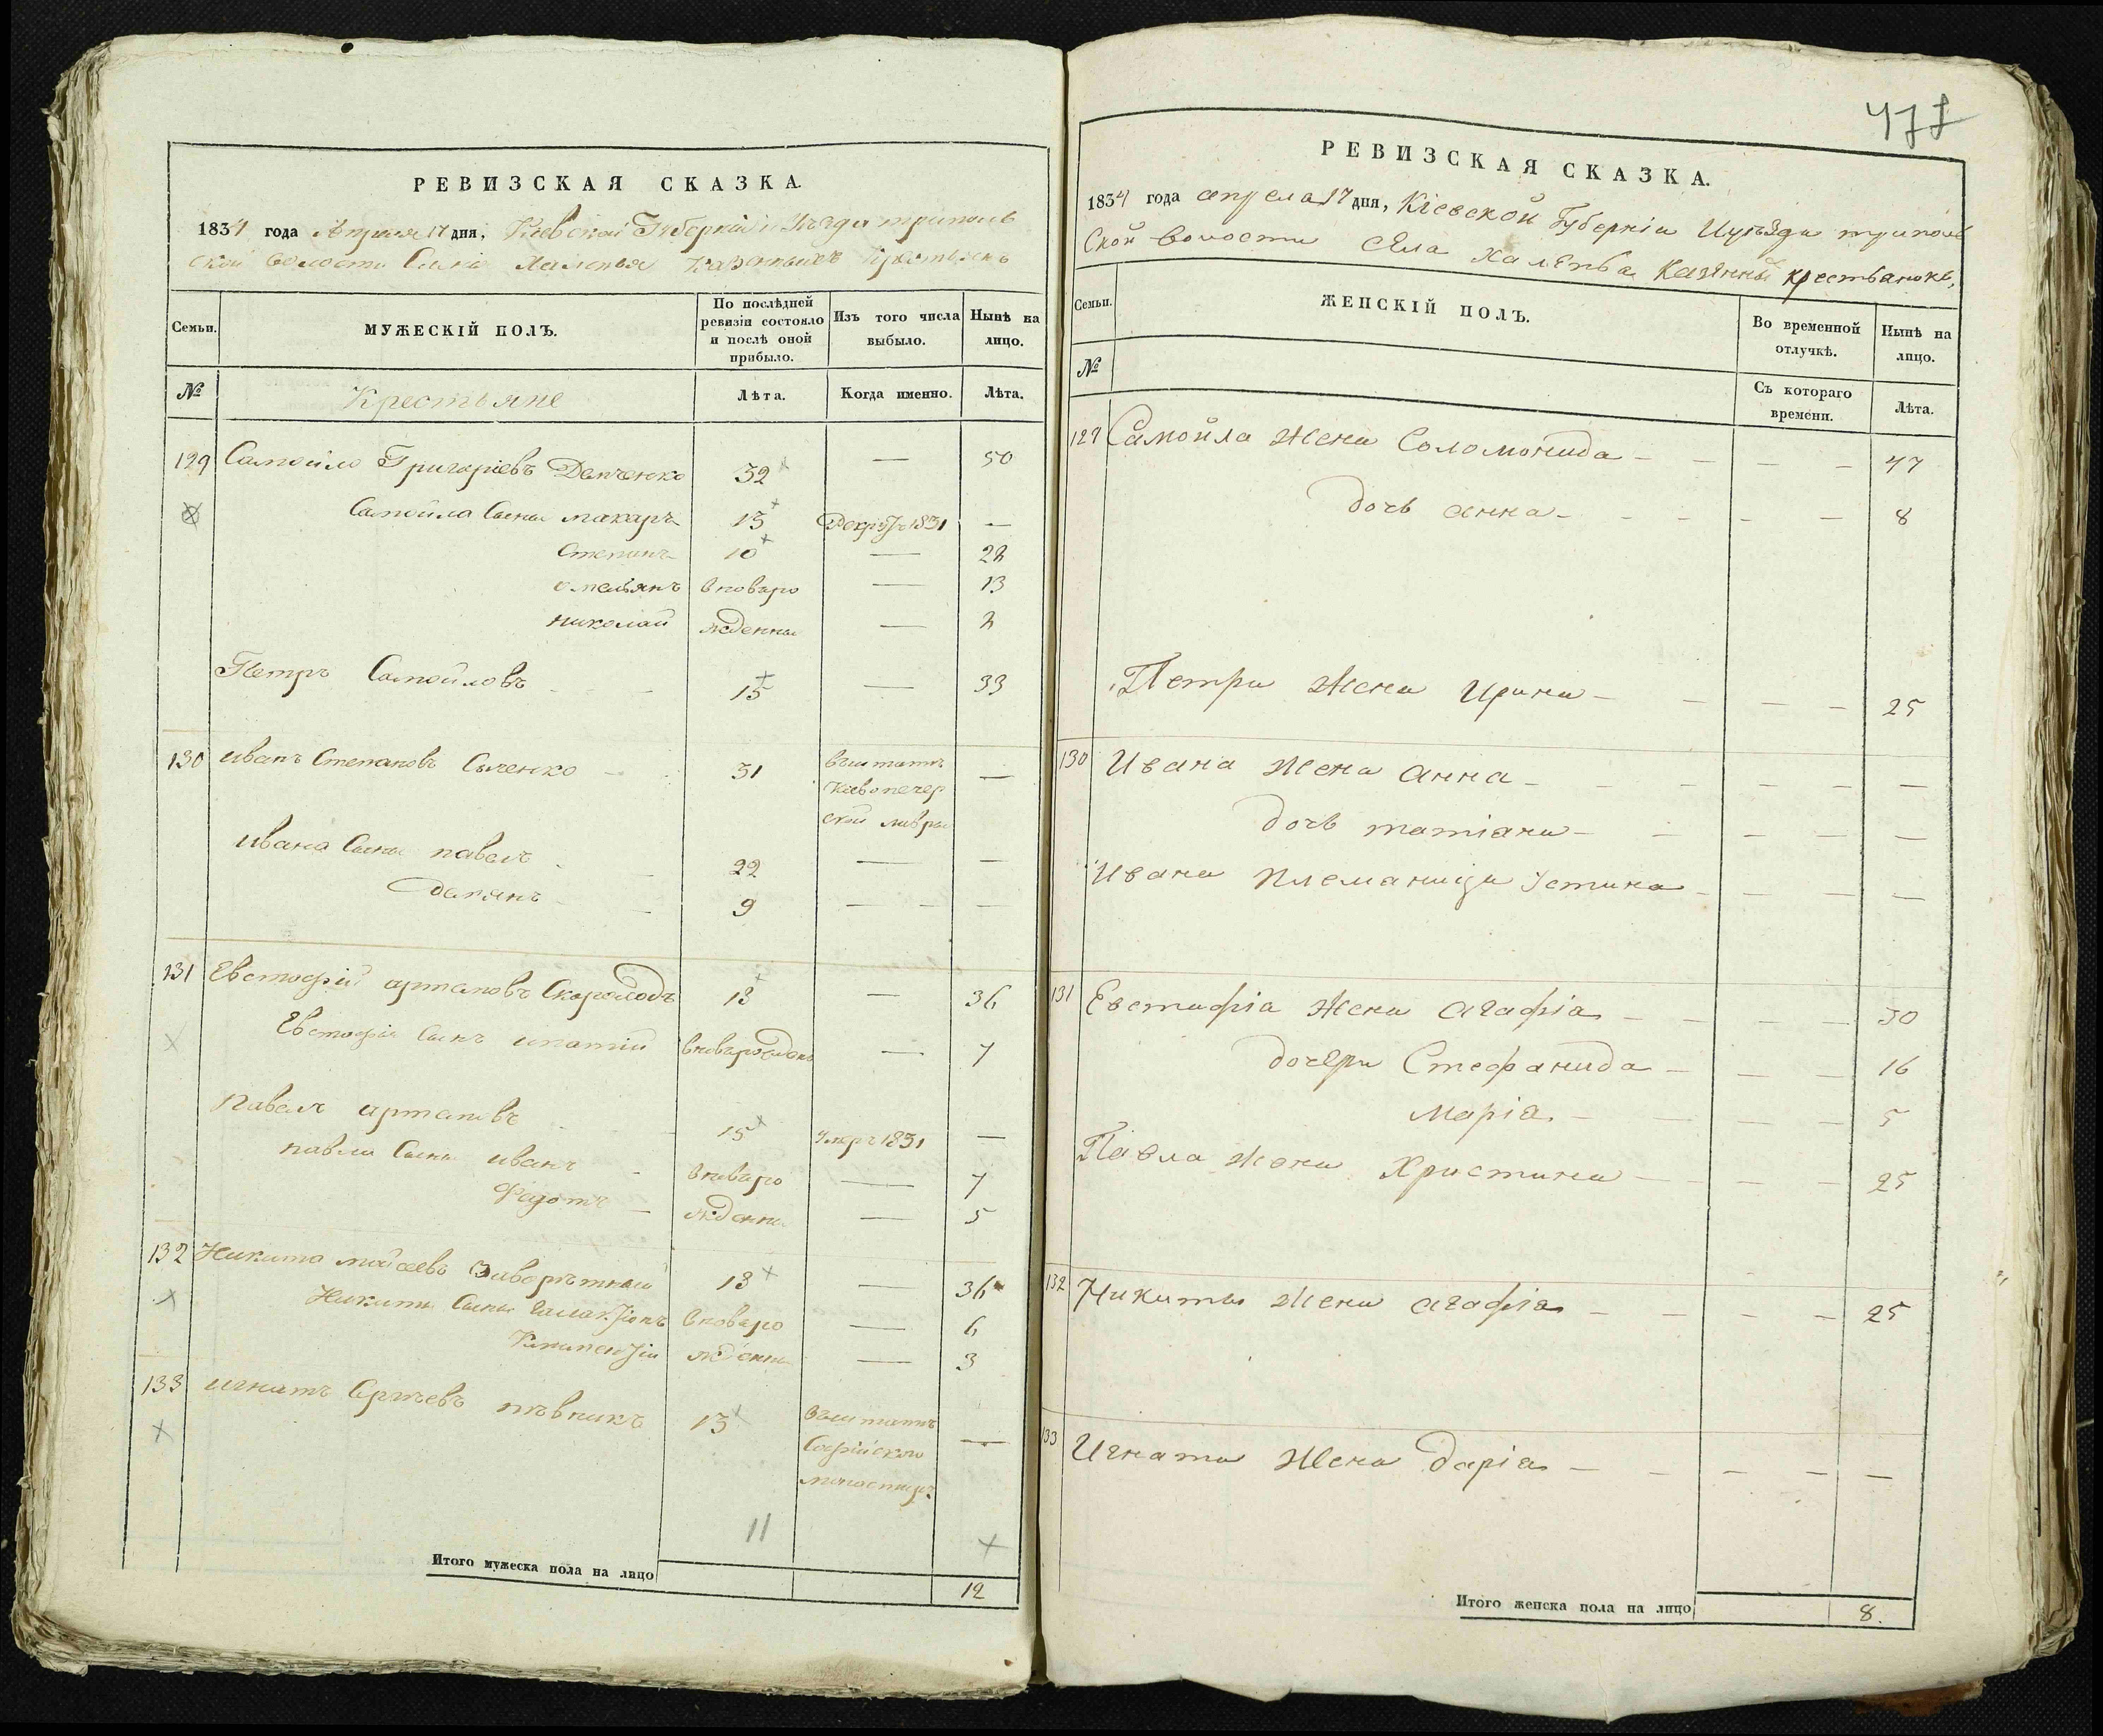 477
РЕВИЗСКАЯ СКАЗКА.
1834 года Апреля 17 дня, Киевской Губерніи и Уезда триполь
ской волости Села Халепья Казенныхъ крестьянъ
Семьи.
МУЖЕСКІЙ ПОЛЪ.
По послѣдней ревизіи состояло и послѣ оной прибыло.
Изъ того числа выбыло.
Нынѣ на лицо.
№
Крестьяне
Лѣта.
Когда именно.
Лѣта.
129 Самойло Григоріевъ Демченко 32 — 50
Самойла Сыны макаръ 13 Рекрутъ 1831 —
Степанъ 10 — 28
омельянъ вновьро — 13
николай жденны — 2
Петръ Самойловъ 15 — 33
130 иванъ Степановъ Сыченко 31 въ штатъ —
Киевопечер
ской лавры
ивана Сыны павелъ 22 — —
демянъ 9 — —
131 Евстафій артемовъ Скороходъ 18 — 36
Евстафія Сынъ игнатій вновьрожденъ — 7
Павелъ артемовъ 15 умеръ 1831 —
павла Сыны иванъ вновьро — 7
Федотъ жденны — 5
132 Никита мойсеевъ 18 — 36
Никиты Сыны вновьро — 6
жденны — 3
133 игнатъ Сергѣевъ пѣвникъ 13 въ штатъ —
Софійского
монастыря
11
Итого мужеска пола на лицо 12
РЕВИЗСКАЯ СКАЗКА.
1834 года апрела 17 дня, Кіевской Губерніи Иуѣзда триполь
Ской Волости Села Халепьа Казенны крестьанокъ,
Семьи.
ЖЕНСКІЙ ПОЛЪ.
Во временной отлучкѣ.
Нынѣ на лицо.
№
Съ котораго времени.
Лѣта.
129 Самойла жена Соломонида — — — — 47
дочь анна — — — — — 8
Петра жена Ирина — — — — 25
130 Ивана жена анна — — — — — —
дочь татіана — — — — —
Ивана племаница Устина — — — —
131 Евстафіа жена агафіа — — — — 30
дочери Стефанида — — — 16
маріа — — — — 5
Павла жена Христина — — — — 25
132 Никиты жена агафіа — — — — 25
133 Игната жена даріа — — — — —
Итого женска пола на лицо 8.